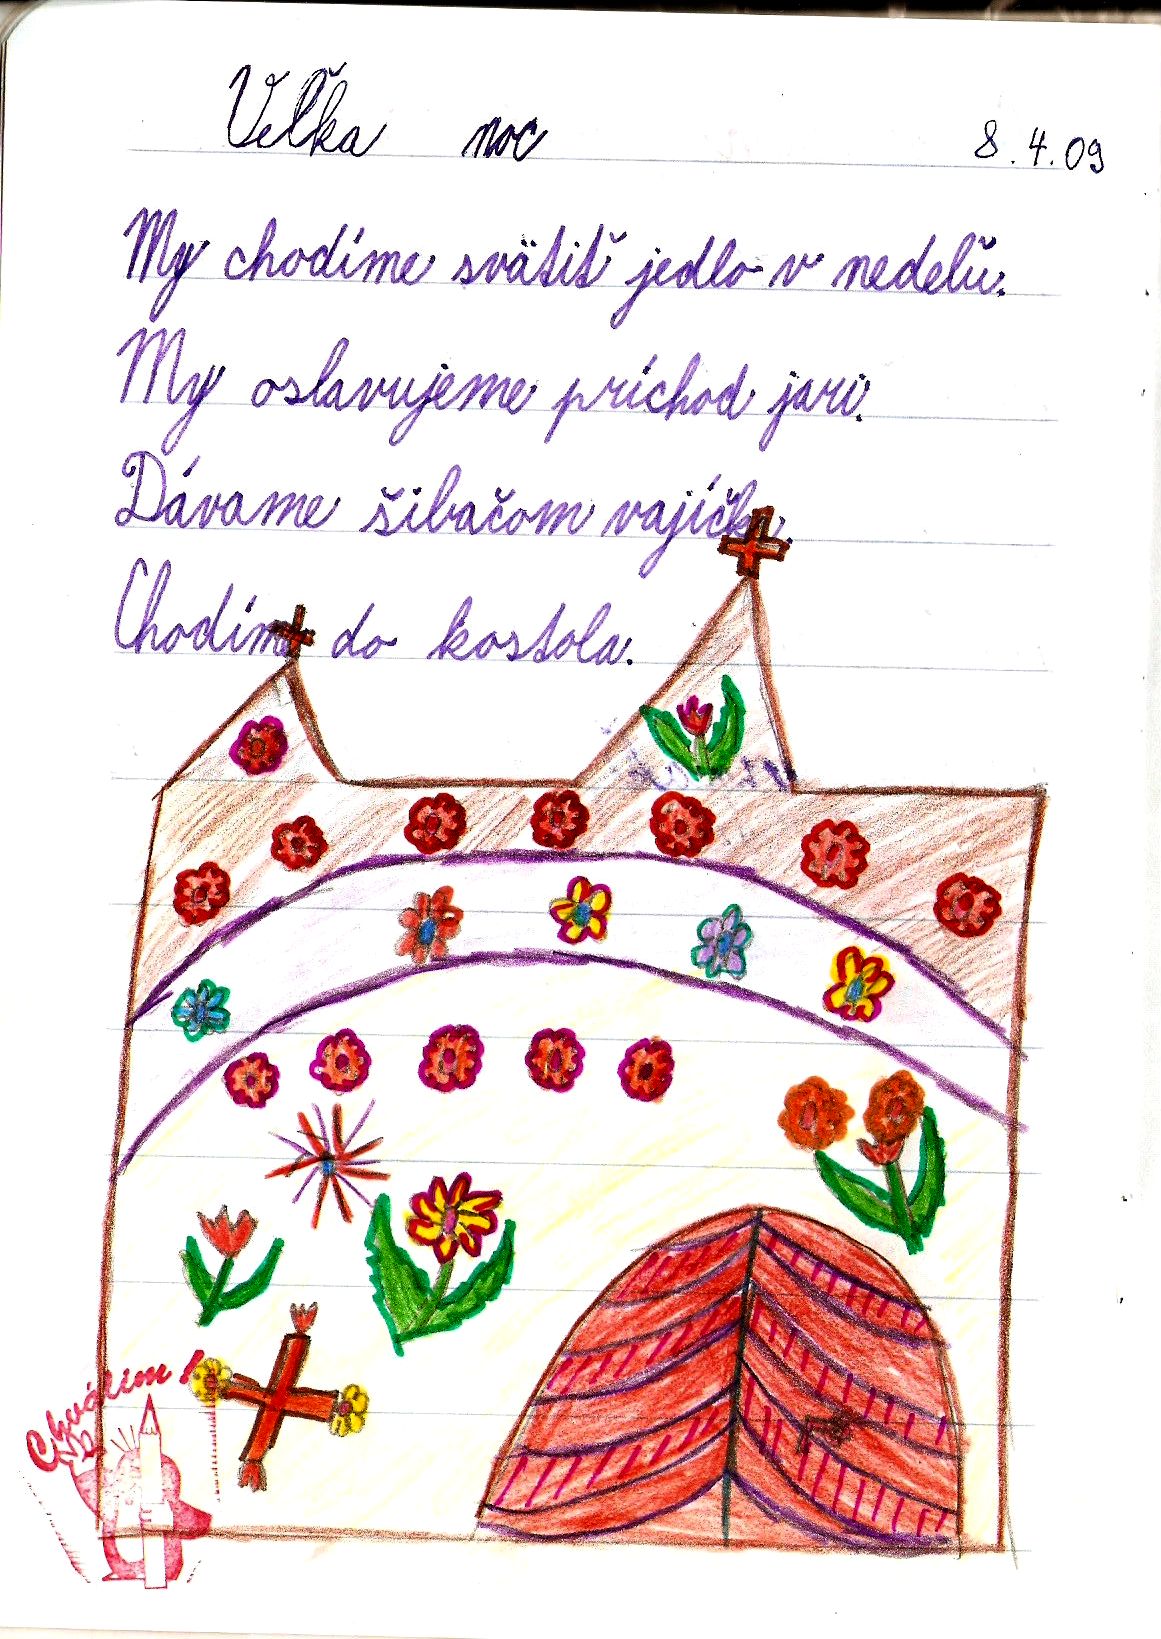 Veľka noc 8.4.09
My chodíme svätiť jedlo v nedeľu.
My oslavujeme príchod jari.
Dávame šibačom vajíčka.
Chodíme do kostola.
Chválim !